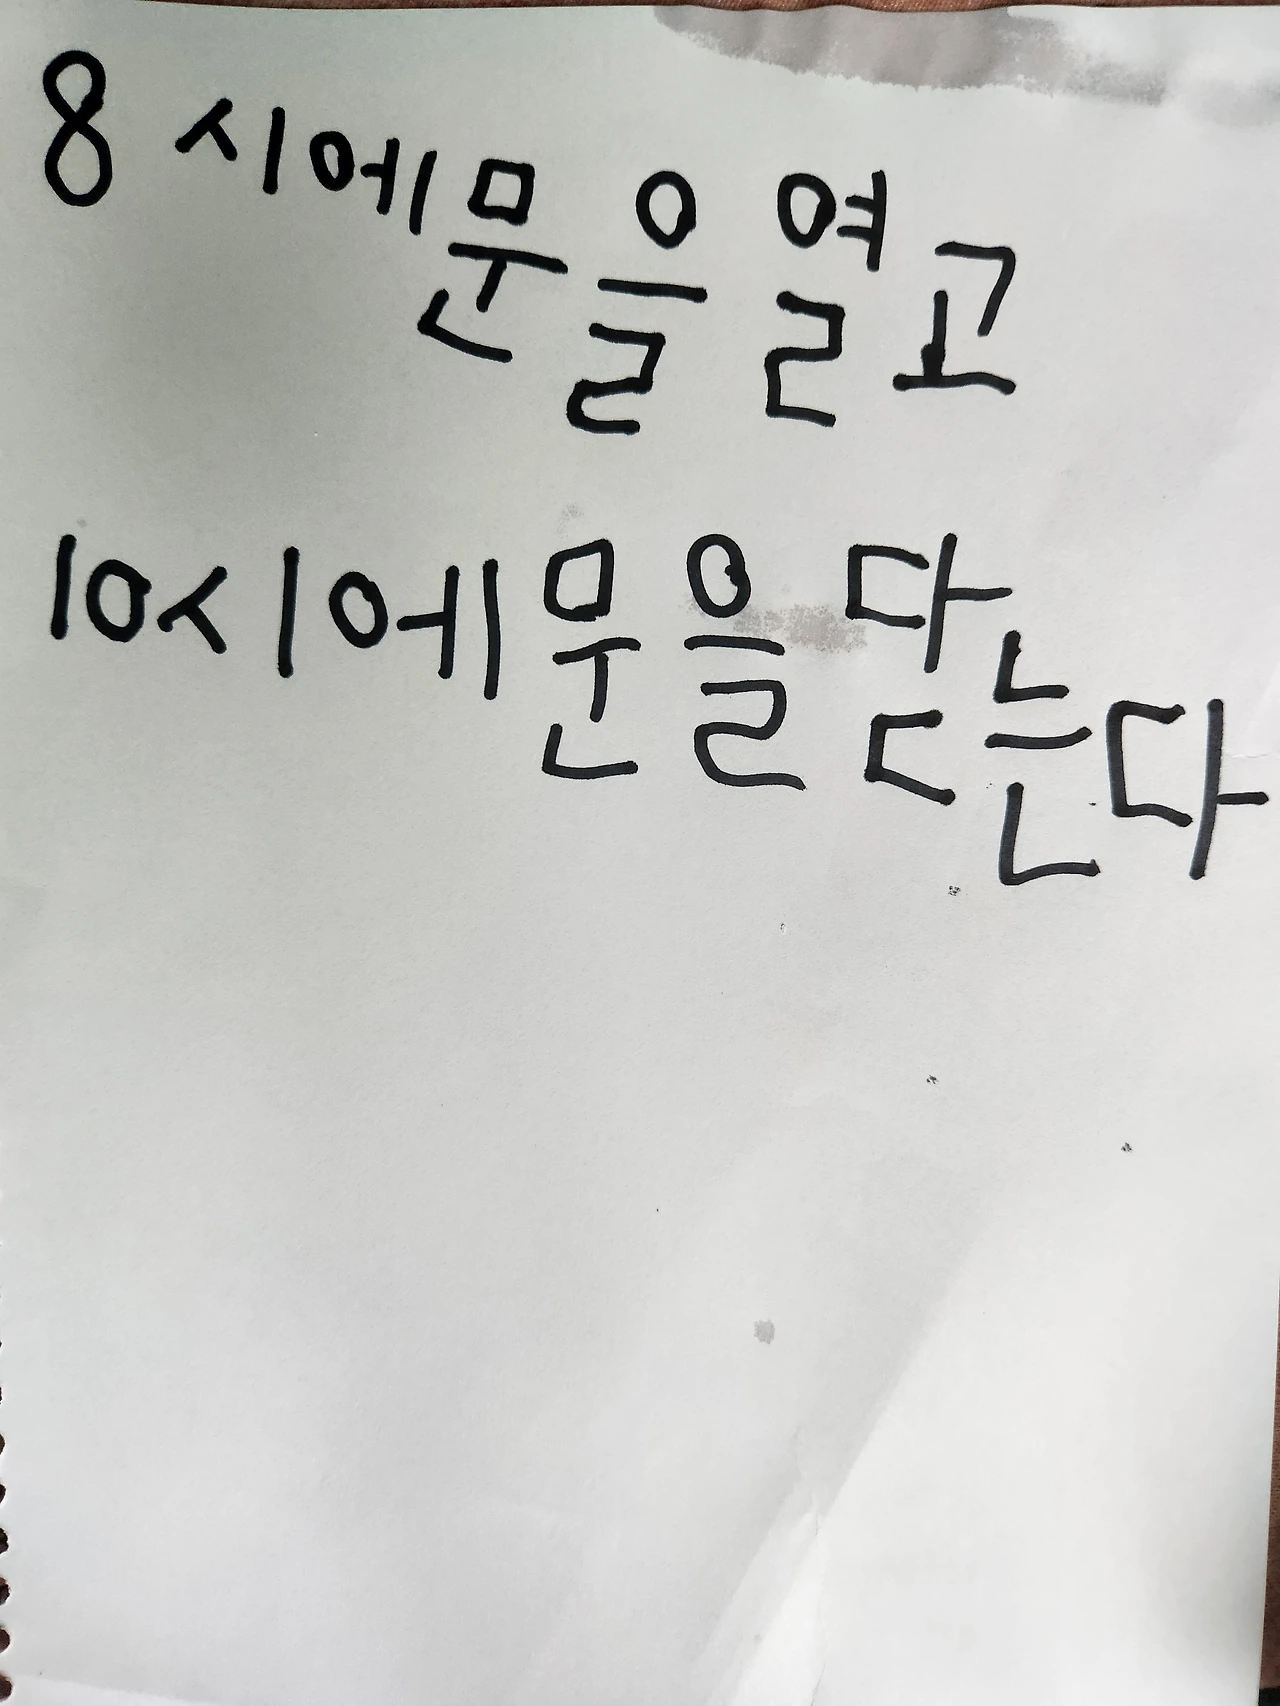 8시에문을열고
10시에문을닫는다